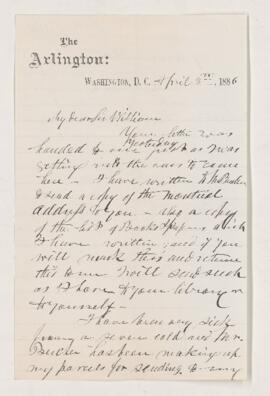 The
Arlington:
WASHINGTON, D. C. April 3rd, 1886
My dear Sir William
Your letter was
handed to me yesterday just as I was
getting into the cars to come
here - I have written to Mr
to send a copy of the Montreal
address to you - also a copy
of the list of Books & papers which
I have written, and if you
will mark this and return
this to me I will send such
as I have to your library or
to yourself -
I have been very sick
from a severe cold and Mr.
has been making up
my parcels for sending to my